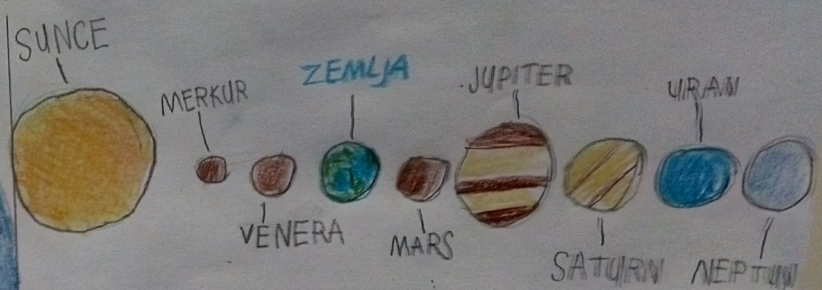 SUNCE
MERKUR
VENERA
ZEMLJA
MARS
JUPITER
SATURN
URAN
NEPTUN